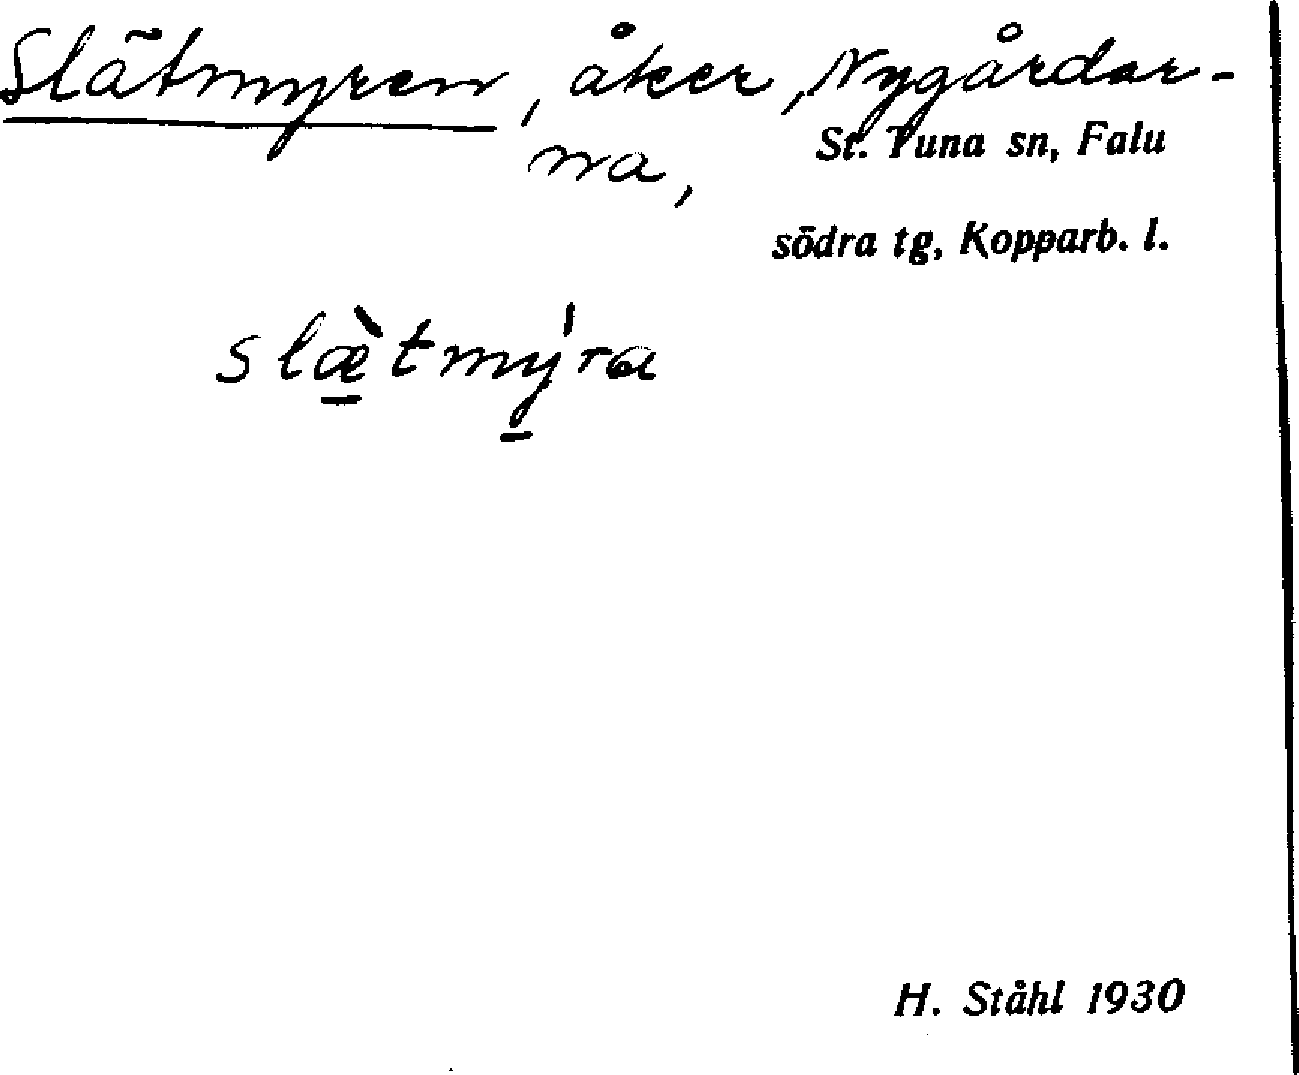 Slätmyren, åker, Nygårdar-
na,
St. Tuna sn, Falu
södra tg, Kopparb. l.
slæ̠̀tmý̠ra
H. Ståhl 1930